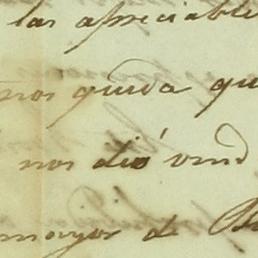 las apreciable
nos queda qu
nos dió vmd
mayor de